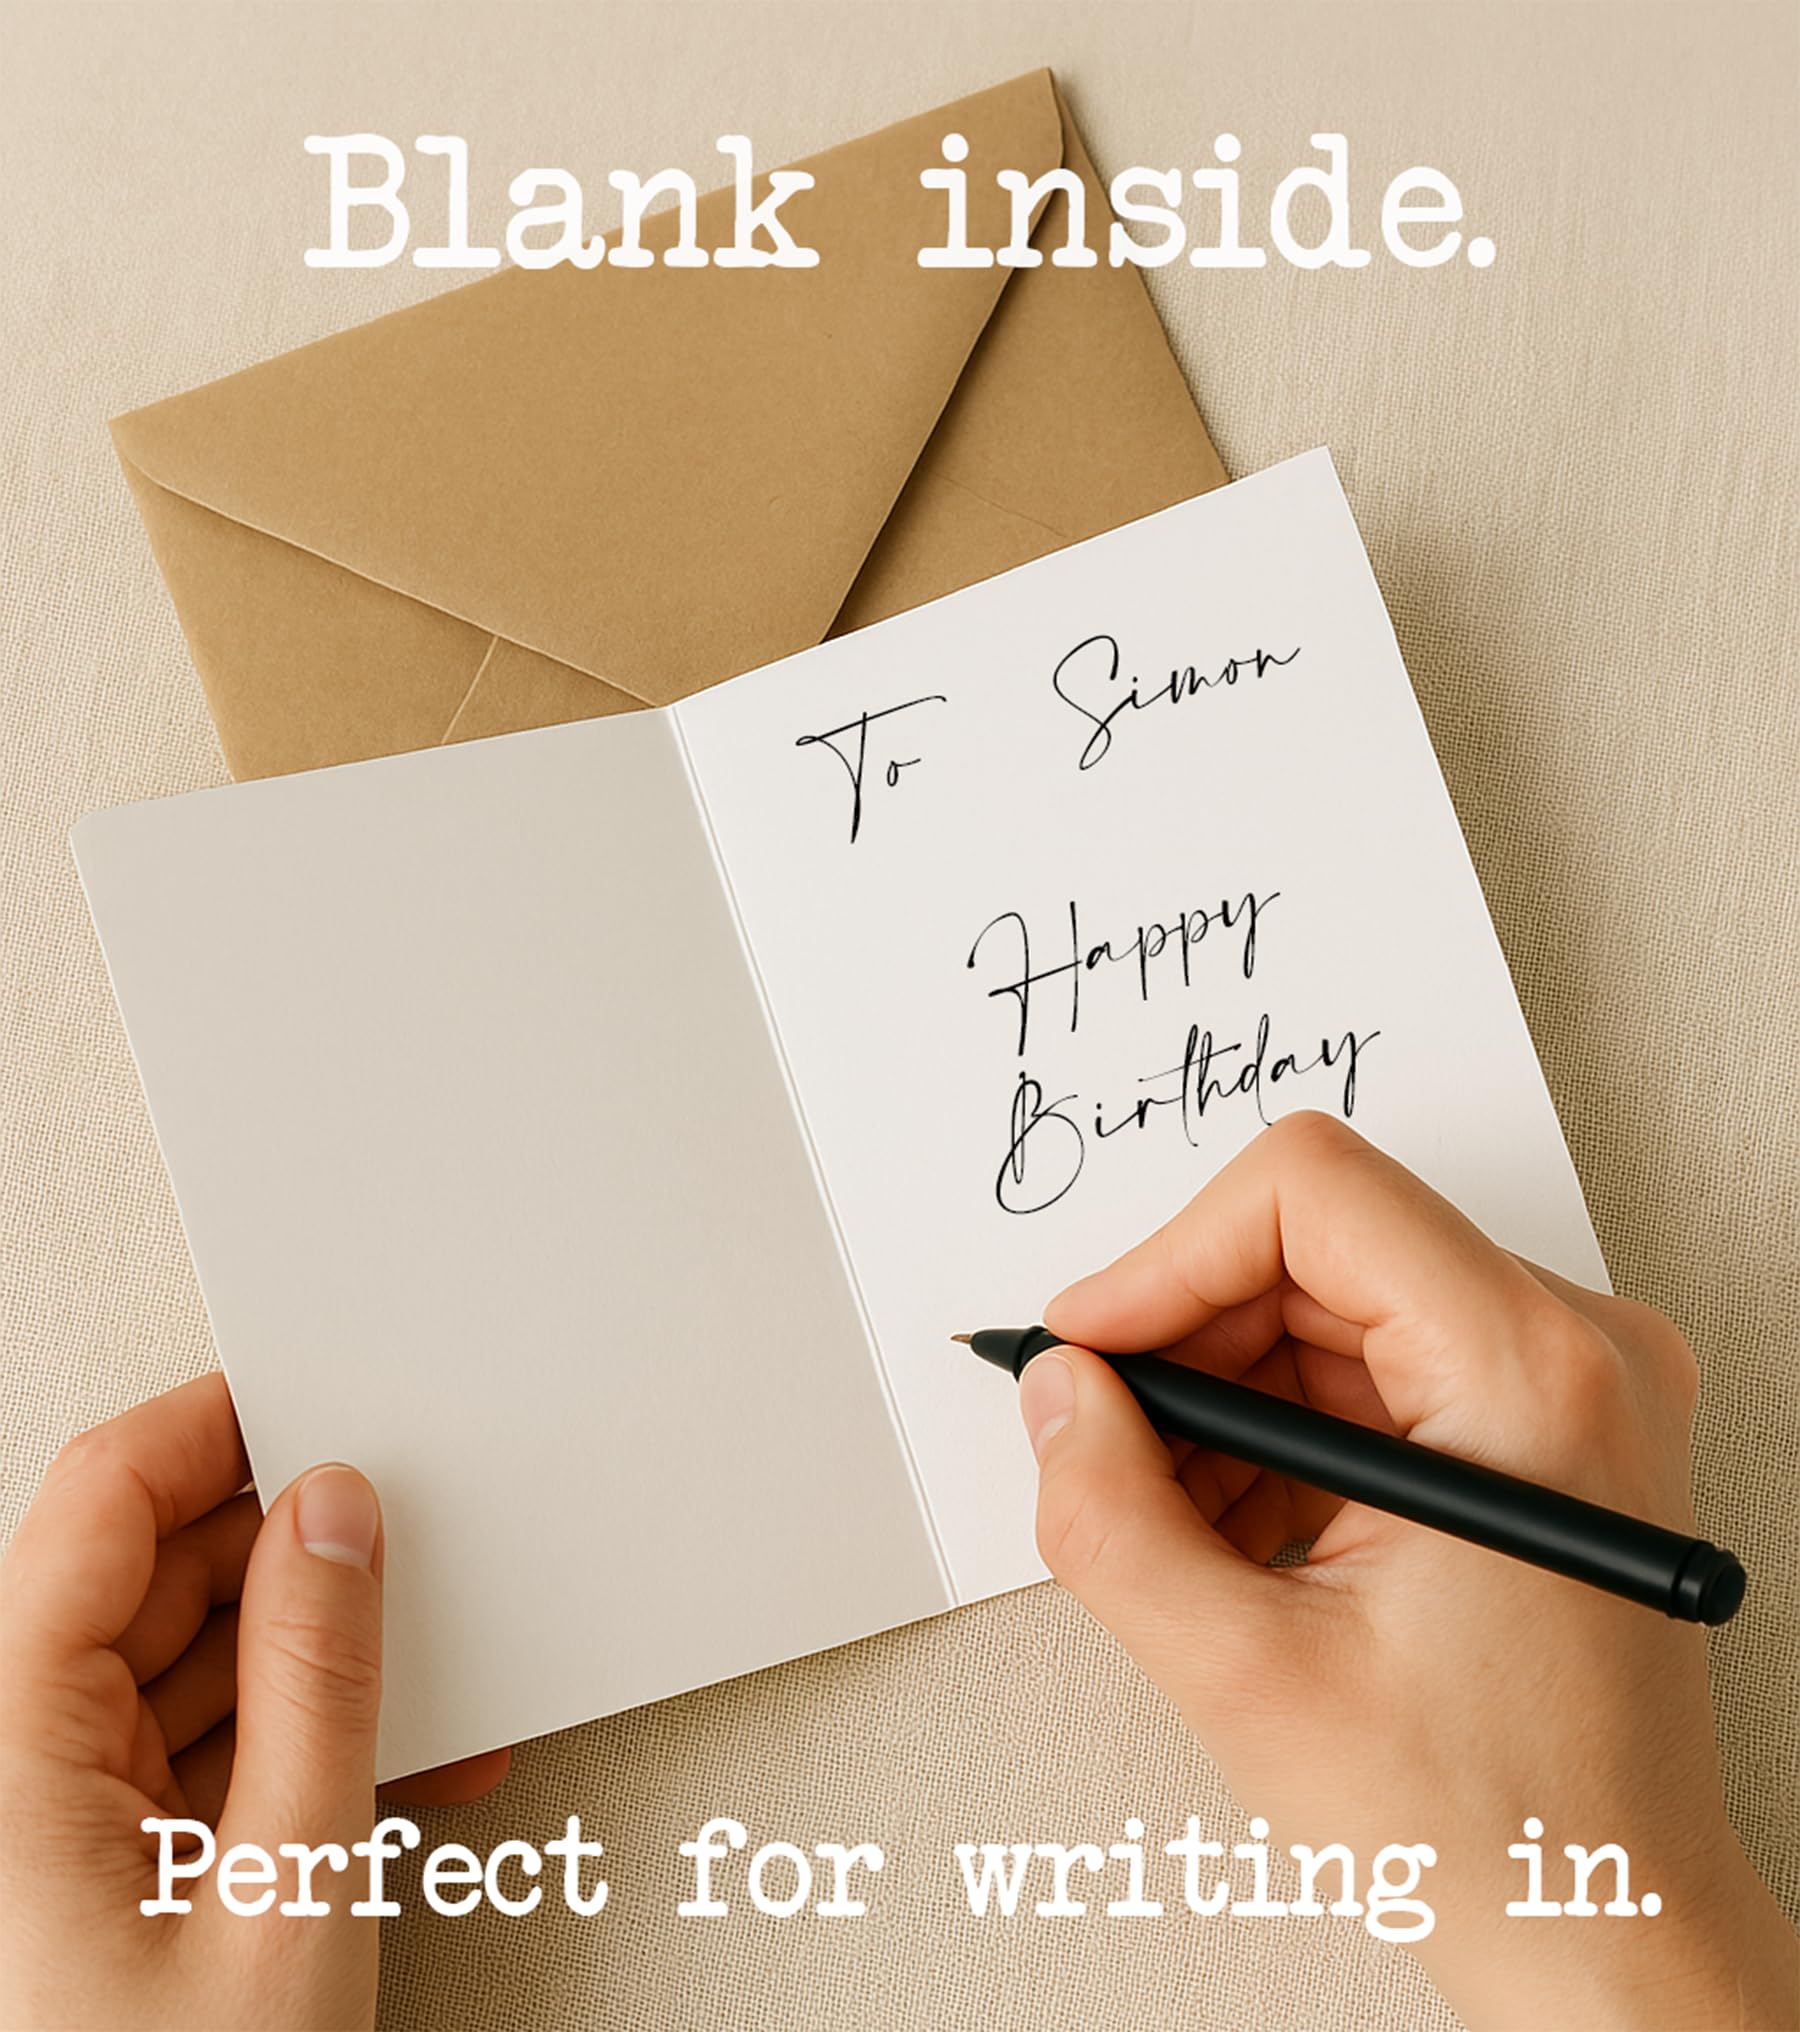 Blank inside.
To Simon
Happy
Birthday
Perfect for writing in.